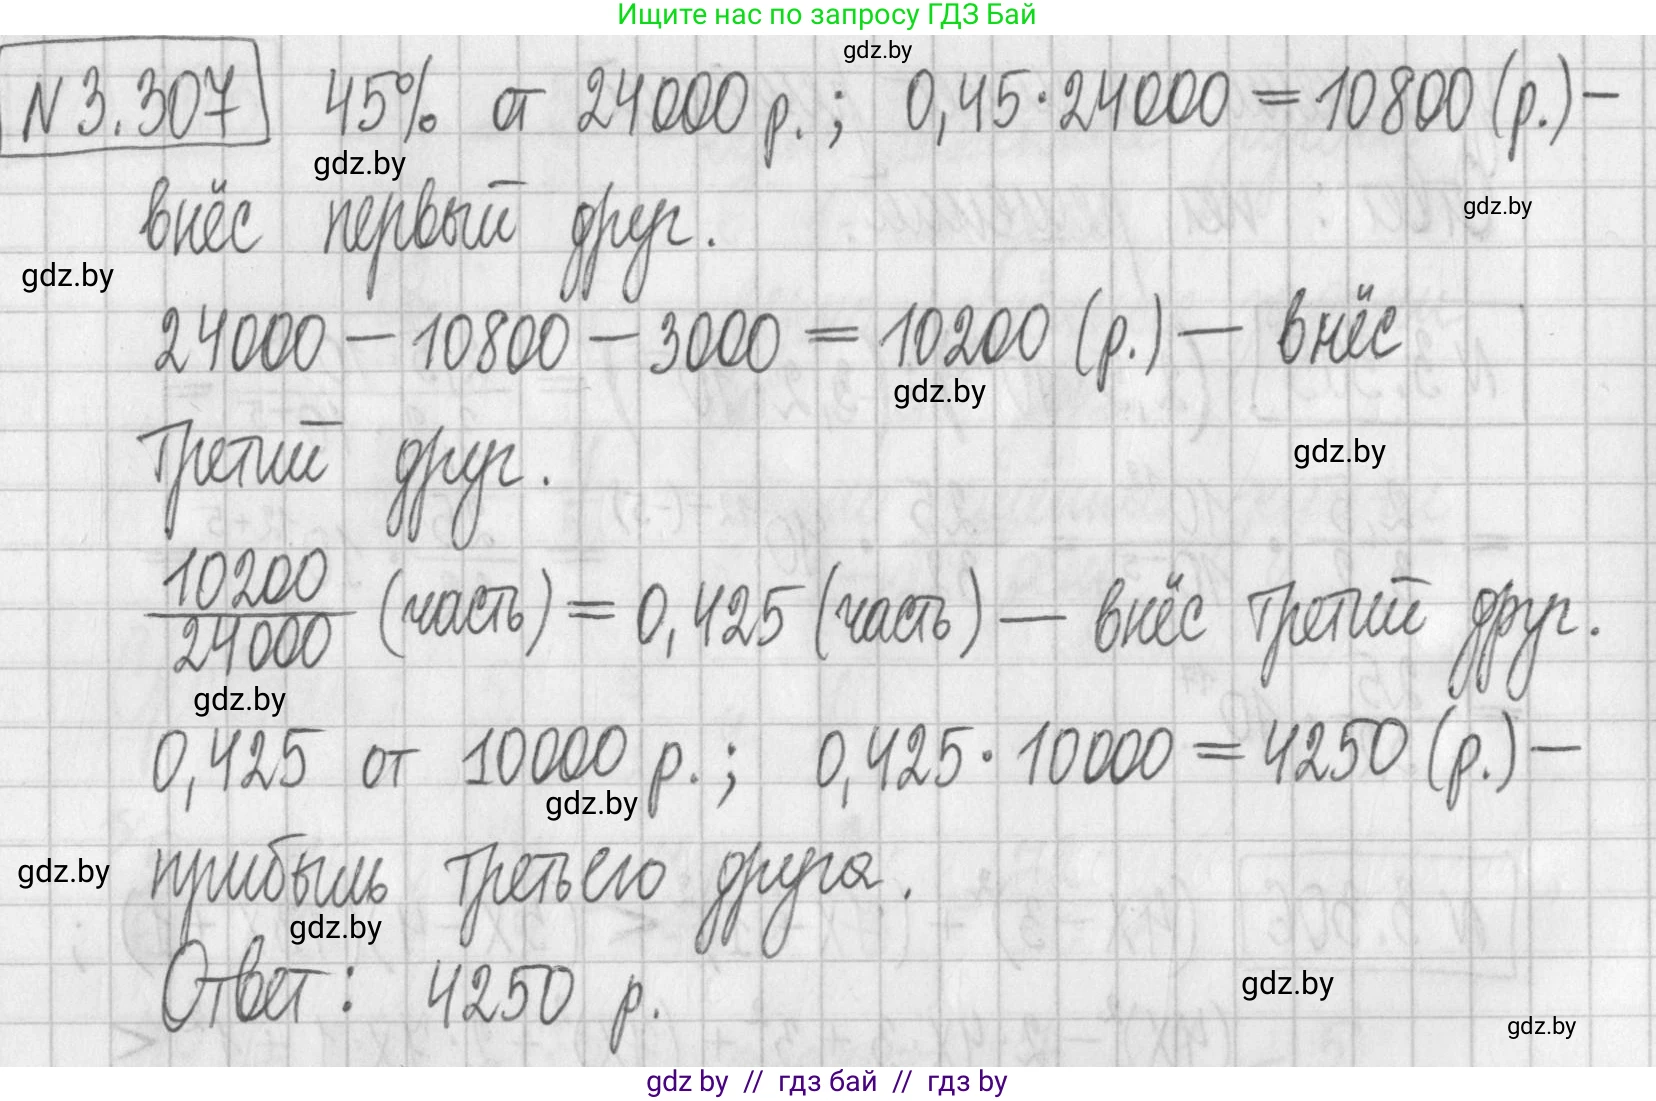 Ищите нас по запросу ГДЗ Бай
gdz.by
N3.307 45% от 24000 р.; 0,45·24000 = 10800 (р.) –
gdz.by
gdz.by
внёс первый друг.
gdz.by
24000 – 10800 – 3000 = 10200 (р.) – внёс
gdz.by
третий друг.
gdz.by
10200/24000 (часть) = 0,425 (часть) – внёс третий друг.
gdz.by
0,425 от 10000 р.; 0,425·10000 = 4250 (р.) –
gdz.by
gdz.by
прибыль третьего друга.
gdz.by
Ответ: 4250 р.
gdz.by
gdz.by
gdz by // гдз бай // гдз by